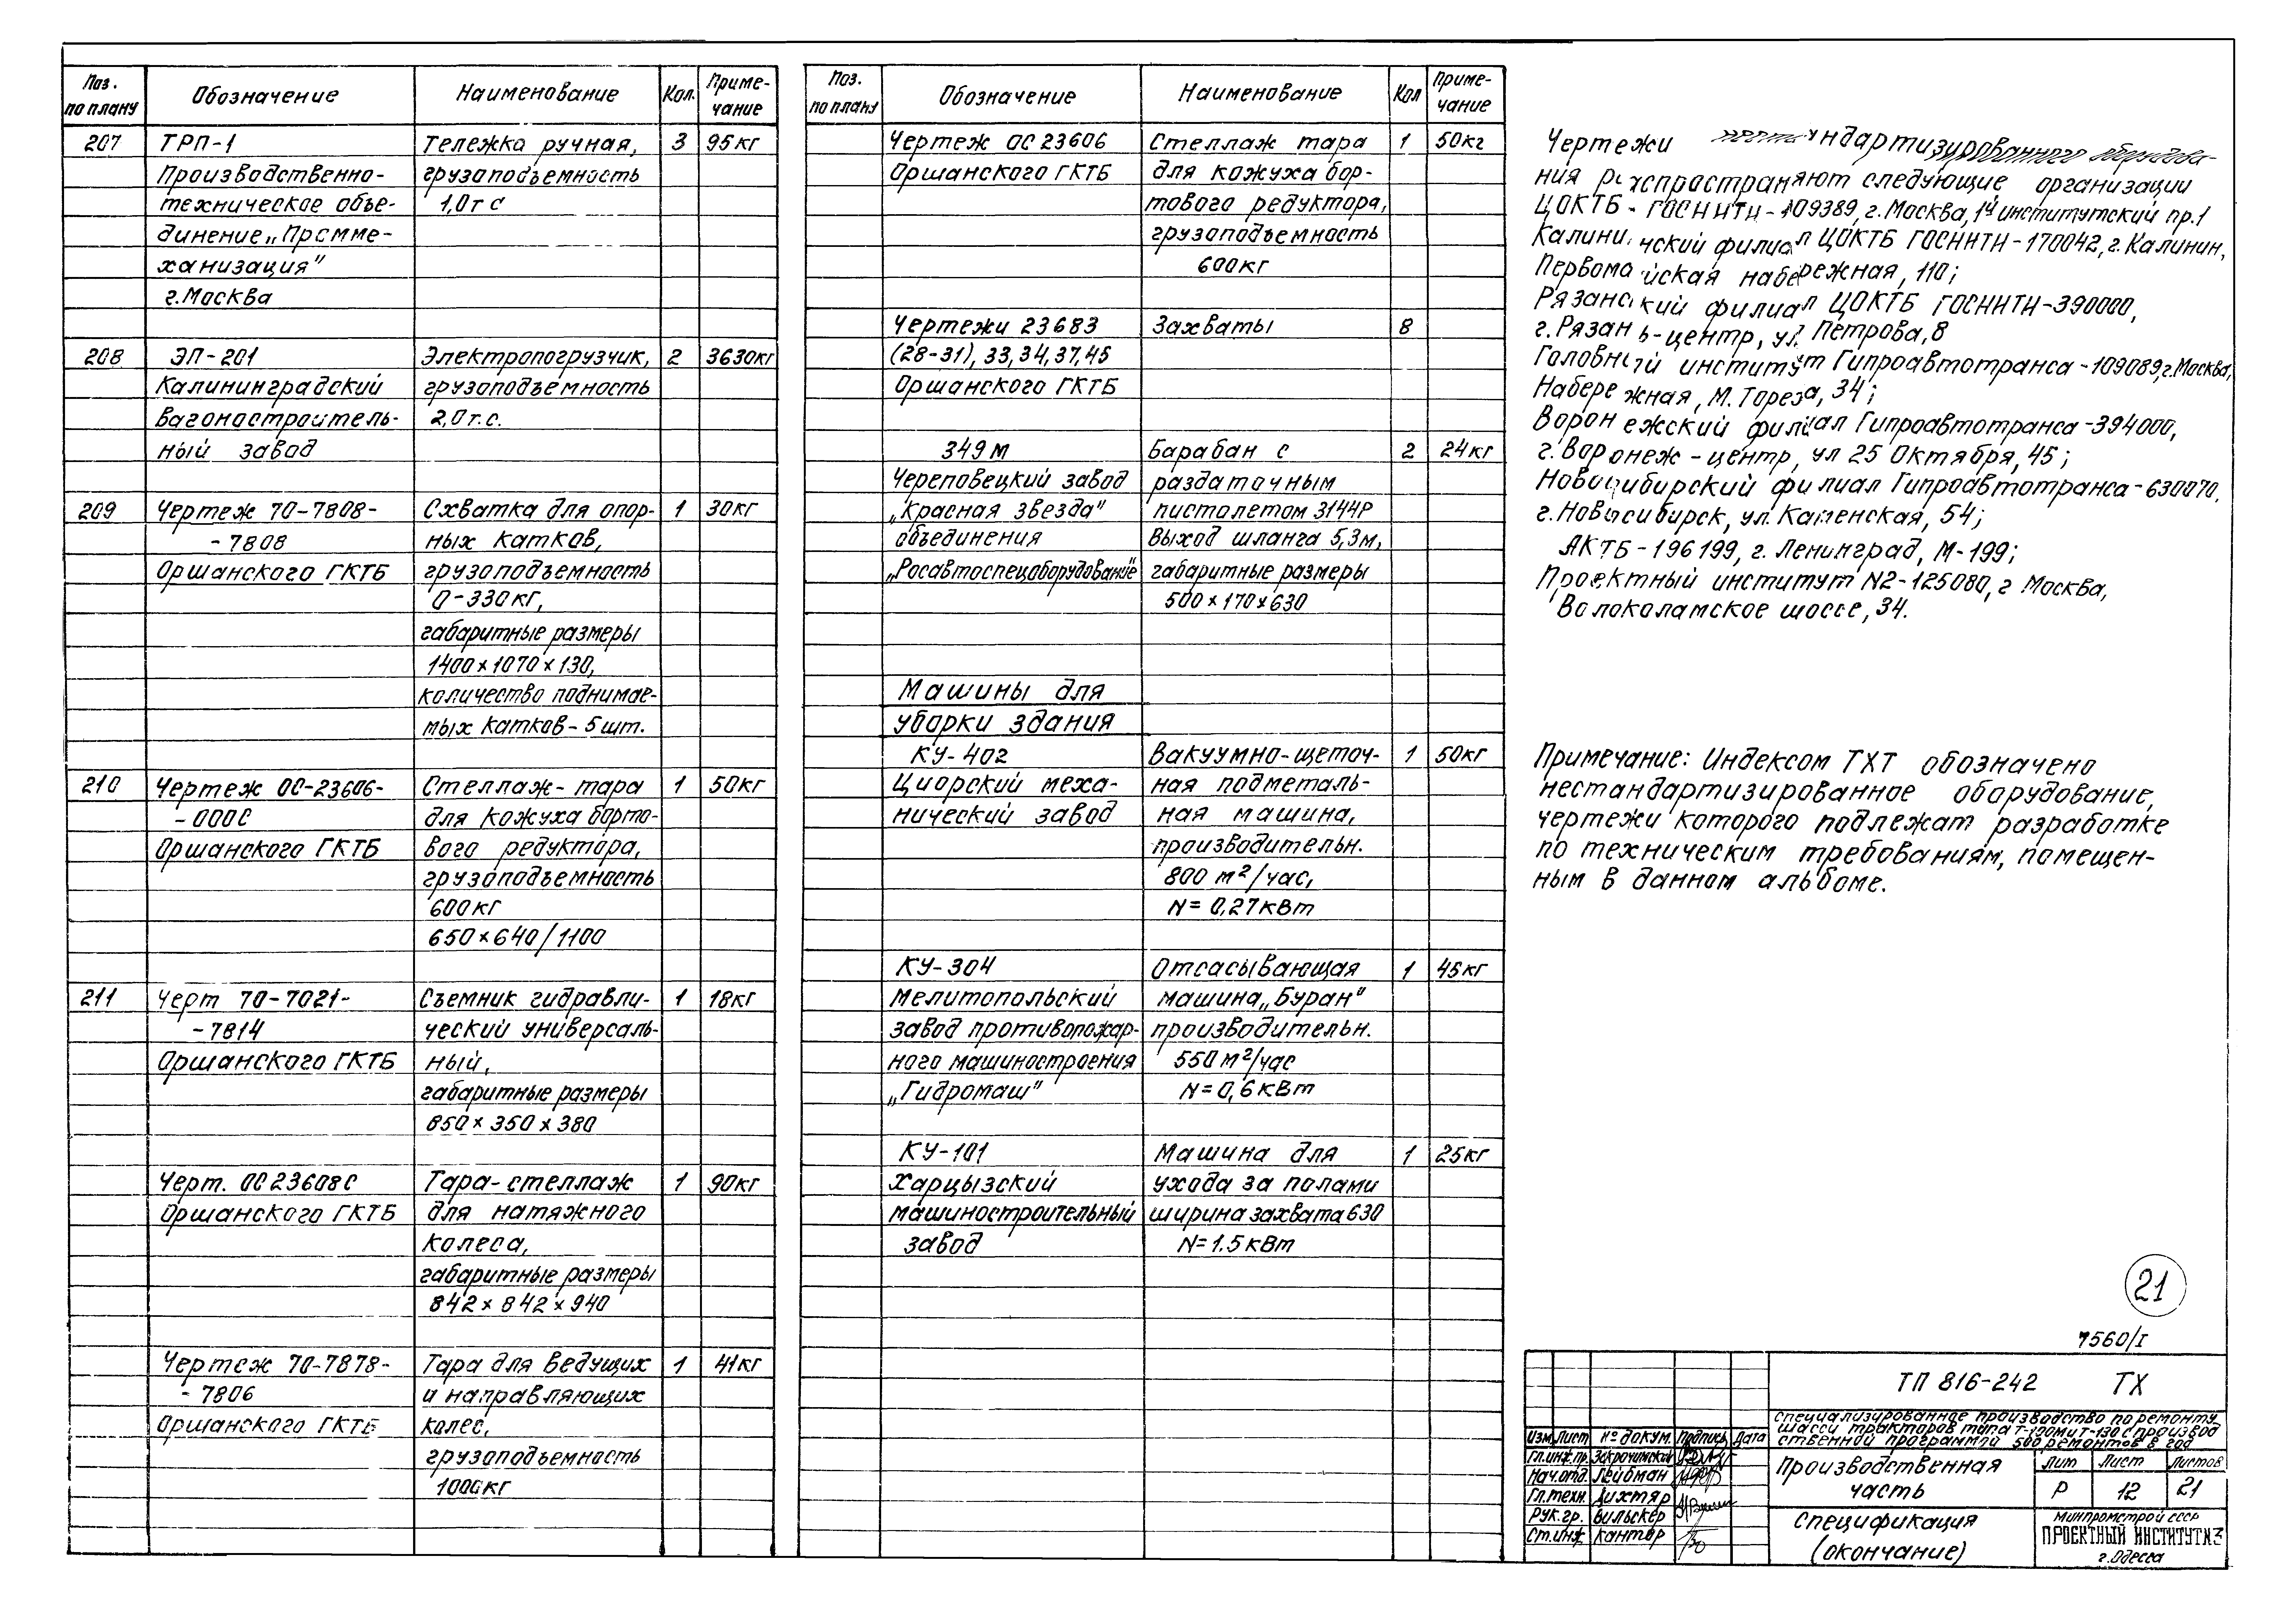 Поз. по плану | Обозначение | Наименование | Кол. | Приме-чание
207 | ТРП-1 | Тележка ручная, | 3 | 95кг
Производственно- | грузоподъемность
техническое объе- | 1,0тс
динение „Промме-
ханизация"
г.Москва
208 | ЭП-201 | Электропогрузчик, | 2 | 3630кг
Калининградский | грузоподъемность
вагоностроитель- | 2,0т.с.
ный завод
209 | Чертеж 70-7808- | Схватка для опор- | 1 | 30кг
-7808 | ных катков,
Оршанского ГКТБ | грузоподъемность
0-330кг,
габаритные размеры
1400×1070×130,
количество поднимае-
мых катков-5шт.
210 | Чертеж ОС-23606- | Стеллаж-тара | 1 | 50кг
-000С | для кожуха борто-
Оршанского ГКТБ | вого редуктора,
грузоподъемность
600кг
650×640/1100
211 | Черт 70-7021- | Съемник гидравли- | 1 | 18кг
-7814 | ческий универсаль-
Оршанского ГКТБ | ный,
габаритные размеры
850×350×380
Черт. ОС23608С | Тара-стеллаж | 1 | 90кг
Оршанского ГКТБ | для натяжного
колеса,
габаритные размеры
842×842×940
Чертеж 70-7878- | Тара для ведущих | 1 | 41кг
-7806 | и направляющих
Оршанского ГКТБ | колес,
грузоподъемность
1000кг
Поз. по плану | Обозначение | Наименование | Кол | Приме-чание
Чертеж ОС23606 | Стеллаж тара | 1 | 50кг
Оршанского ГКТБ | для кожуха бор-
тового редуктора,
грузоподъемность
600кг
Чертежи 23683 | Захваты | 8
(28-31), 33, 34, 37, 45
Оршанского ГКТБ
349М | Барабан с | 2 | 24кг
Череповецкий завод | раздаточным
„Красная звезда" | пистолетом 3144Р
объединения | Выход шланга 5,3м,
„Росавтоспецоборудование" | габаритные размеры
500×170×630
Машины для
уборки здания
КУ-402 | Вакуумно-щеточ- | 1 | 50кг
Циорский меха- | ная подметаль-
нический завод | ная машина,
производительн.
800 м²/час,
N= 0,27кВт
КУ-304 | Отсасывающая | 1 | 45кг
Мелитопольский | машина „Буран"
завод противопожар- | производительн.
ного машиностроения | 550м²/час
„Гидромаш" | N=0,6кВт
КУ-101 | Машина для | 1 | 25кг
Харцызский | ухода за полами
машиностроительный | ширина захвата 630
завод | N=1.5кВт
Чертежи ндартизированного оборудова-
ния распространяют следующие организации
ЦОКТБ-ГОСНИТИ-109389, г.Москва, 1й институтский пр.1
Калининский филиал ЦОКТБ ГОСНИТИ-170042, г.Калинин,
Первомайская набережная, 110;
Рязанский филиал ЦОКТБ ГОСНИТИ-390000,
г.Рязань-центр, ул. Петрова,8
Головной институт Гипроавтотранса-109089, г.Москва,
Набережная, М. Тореза, 34;
Воронежский филиал Гипроавтотранса-394000,
г.Воронеж-центр, ул 25 Октября, 45;
Новосибирский филиал Гипроавтотранса-630070,
г.Новосибирск, ул. Каменская, 54;
АКТБ-196199, г. Ленинград, М-199;
Проектный институт N2-125080, г Москва,
Волоколамское шоссе, 34.
Примечание: Индексом ТХТ обозначено
нестандартизированное оборудование,
чертежи которого подлежат разработке
по техническим требованиям, помещен-
ным в данном альбоме.
21
7560/I
ТП 816-242 ТХ
Специализированное производство по ремонту
шасси тракторов типа Т-100М и Т-130 с производ
ственной программой 500 ремонтов в год
Изм. Лист № докум. Подпись Дата
Гл.инж.пр. Закрочимский
Нач.отд. Лейбман
Гл.техн. Дихтяр
Рук.гр. Вильскер
Ст.инж Кантор
Производственная
часть
Лит Лист Листов
Р 12 21
Спецификация
(окончание)
Минпромстрой СССР
ПРОЕКТНЫЙ ИНСТИТУТ N3
г.Одесса